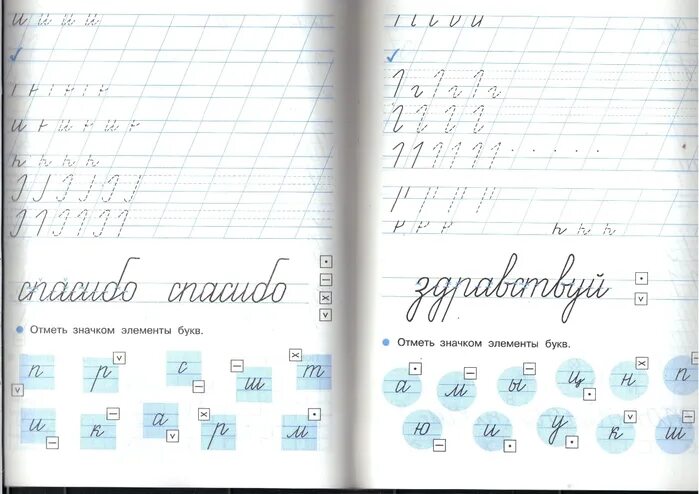 и и и и
спасибо спасибо
Отметь значком элементы букв.
п р с ш т
и к а р м
здравствуй
Отметь значком элементы букв.
а м ы ц н п
ю и у к ш